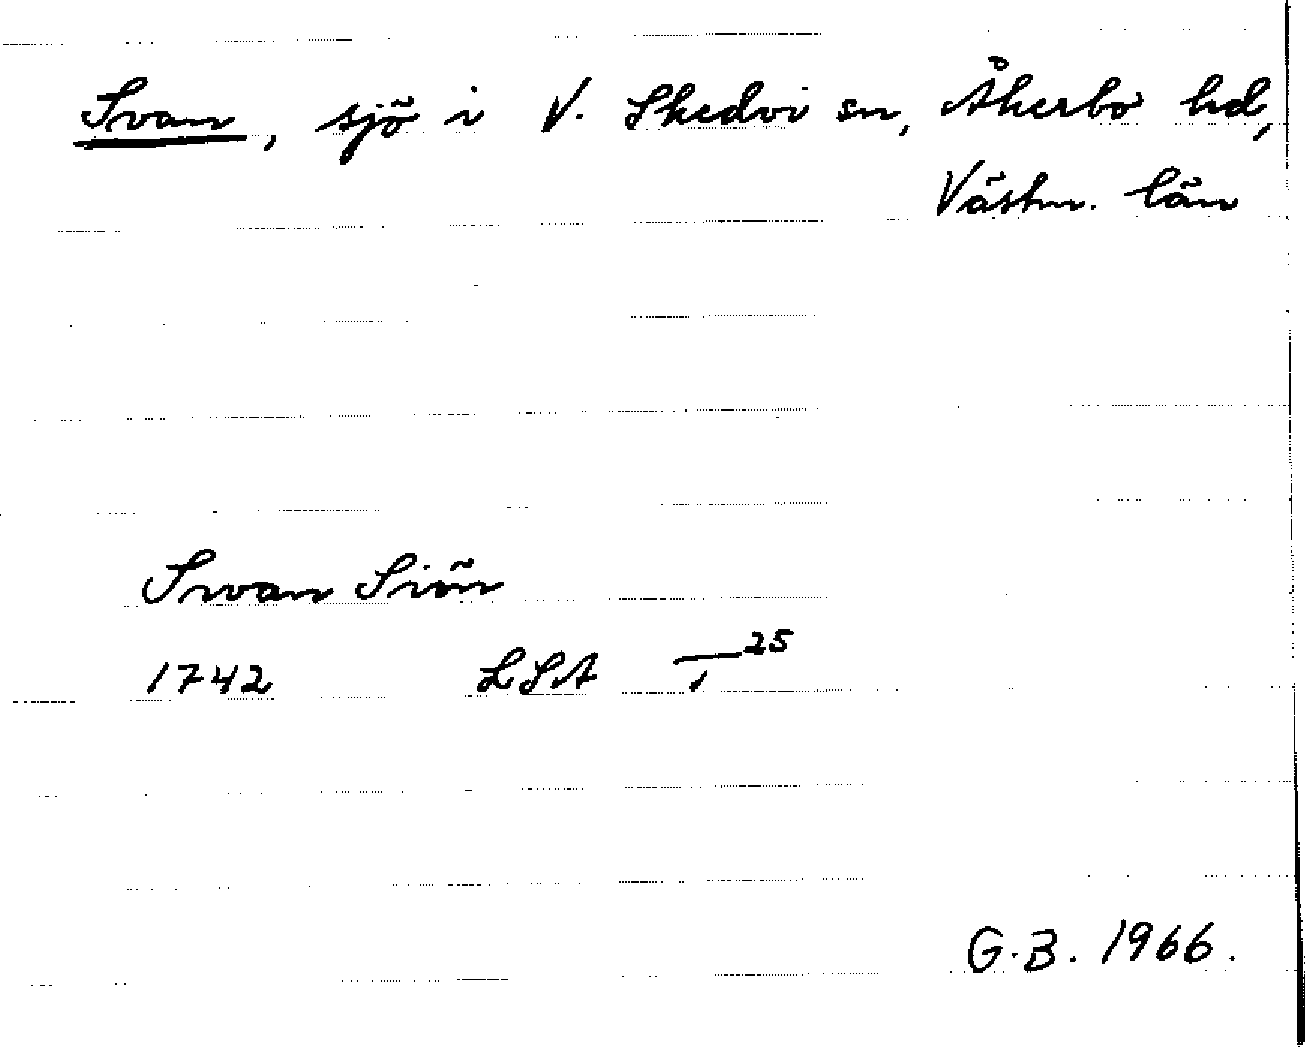 Svan, sjö i V. Skedvi sn, Åkerbo hd,
Västm. län
Swan Siön
1742 LSA —25/1
G.B. 1966.